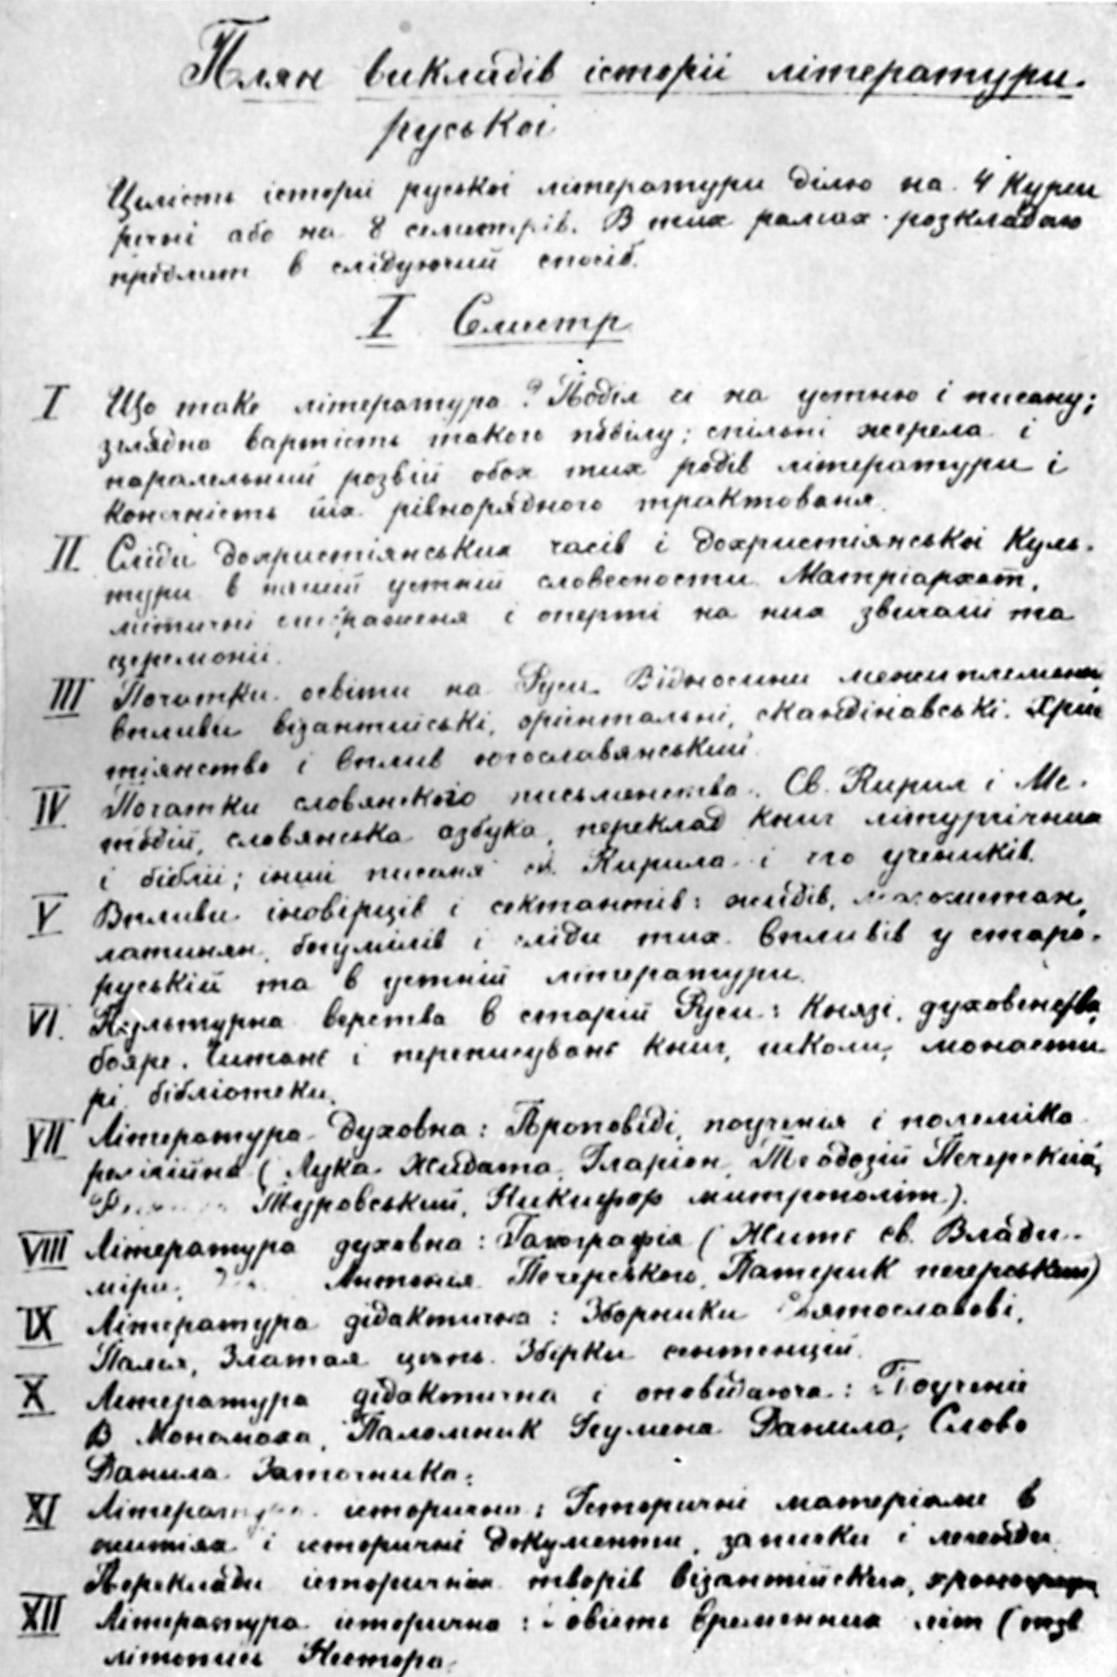 Плян викладів історії літератури
руської
Цілість історії руської літератури ділю на 4 курси
річні або на 8 семестрів. В тих рамах розкладаю
предмет в слідуючий спосіб.
I Семестр
I Що таке література? Поділ єї на устню і писану;
зглядна вартість такого поділу; спільні жерела і
паралельний розвій обох тих родів літератури і
конечність їх рівнорядного трактованя.
II Сліди дохристіянських часів і дохристіянської куль-
тури в нашій устній словесности. Матріархат,
мітичні і оперті на них звичаї та
церемонії.
III Початки освіти на Руси. Відносини межиплеменні,
впливи візантийські, орієнтальні, скандінавські. Хрис
тіянство і вплив югославянський.
IV Початки словянского письменства. Св. Кирил і Ме-
тодій, словянська азбука, переклад книг літургічних
і біблії; інші писаня св. Кирила і єго учеників.
V Впливи іновірців і сектантів: жидів, магометан,
латинян, богумілів і сліди тих впливів у старо-
руській та в устній літературі.
VI. Культурна верства в старій Руси: князі, духовенство,
бояре. Читанє і переписуванє книг, школи, монасти
рі, бібліотеки.
VII Література духовна: Проповіді, поученія і полеміка
релігійна (Лука Жидята, Іларіон, Теодозій Печерский,
Туровський, Никифор митрополіт).
VIII Література духовна: Гагіографія (Житє св. Влади-
міра, Антонія Печерського, Патерик печерський)
IX Література дідактична: Зборники Святославові,
Палея, Златая цѣпь. Збірки сентенцій.
X Література дідактична і оповідаюча: Поученіє
В. Мономаха, Паломник Ігумена Данила, Слово
Данила Заточника.
XI Література історична: Історичні матеріали в
житіях і історичні документи, записки і легенди.
Переклади історичних творів візантийських, хронографи
XII Література історична: Повѣсть временних літ (т.зв.
літопись Нестора.